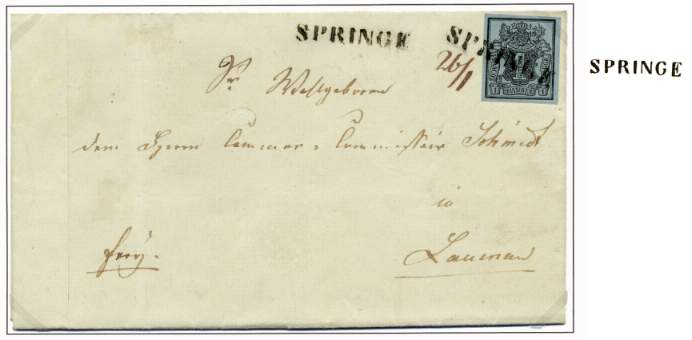 SPRINGE SPRINGE
26/1
Sr. Wohlgeboren
dem Herrn Cammer-Commissair Schmidt
in
frey.
Lauenau
SPRINGE